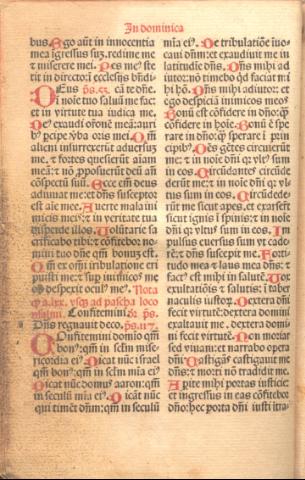 In dominica
bus. Ego aūt in innocentia
mea ingressus suꝫ. redime me
⁊ miserere mei. Pes me⁹ ste
tit in directo: ī ecclesijs bn̄di
DEus ps.53. cā te dn̄e.
In noīe tuo saluū me fac:
et in virtute tua iudica me.
De⁹ exaudi orōnē meā: auri
bꝰ ꝑcipe ꝟba oris mei. Qm̄
alieni insurrexerūt aduersuꝫ
me: ⁊ fortes quesierūt aīam
meā: ⁊ nō ꝓposuerūt deū an̄
cōspectū suū. Ecce em̄ deus
adiuuat me: et dn̄s susceptor
est aīe mee. Auerte mala ini
micis meis: ⁊ in veritate tua
disperde illos. Uolūtarie sa
crificabo tibi: ⁊ cōfitebor no
mini tuo dn̄e qm̄ bonuꝫ est.
Qm̄ ex om̄i tribulatione eri
puisti me: ⁊ sup̄ inimicos me
os despexit ocul⁹ me⁹. Nota
vsqꝫ ad pascha loco
Confitemini ps.
Dn̄s regnauit deco. ps.117.
COnfitemini domīo qm̄
bon⁹: qm̄ in seclm̄ mise
ricordia ei⁹. Dicat nūc israel
qm̄ bon⁹: qm̄ in seclm̄ mīa ei⁹
Dicat nūc domus aaron: qm̄
in seculū mīa ei⁹. Dicāt nūc
qui timēt dn̄m: qm̄ in seculū
mīa ei⁹. De tribulatiōe īuo
caui dn̄m: et exaudiuit me in
latitudīe dn̄s. Dn̄s mihi ad
iutor: nō timebo qd faciat mi
hi hō. Dn̄s mihi adiutor: et
ego despiciā inimicos meos
Bonū est cōfidere in dn̄o: qꝫ
cōfidere in hoīe. Bonū ē spe
rare in dn̄o: qꝫ sperare ī prin
cipibꝰ. Om̄s gētes circuierūt
me: ⁊ in noīe dn̄i qꝛ vlt⁹ sum
in eos. Circūdantes circūde
derūt me: ⁊ in noīe dn̄i qꝛ vl
tus sum in eos. Circūdede
rūt me sicut apes. et exarserūt
sicut ignis ī spinis: ⁊ in noīe
dn̄i qꝛ vltus sum in eos. Im
pulsus euersus sum vt cade
rē: ⁊ dn̄s suscepit me. Forti
tudo mea ⁊ laus mea dn̄s: ⁊
fact⁹ est mihi in salutē. Uox
exultatiōis ⁊ salutis: ī taber
naculis iustoꝝ. Dextera dn̄i
fecit virtutē: dextera domini
exaltauit me. dextera domi
ni fecit virtutē. Non moriar
sed viuam: et narrabo opera
dn̄i. Castigās castigauit me
dn̄s: et morti nō tradidit me.
Apite mihi portas iusticie:
et ingressus in eas cōfitebor
dn̄o: hec porta dn̄i iusti ītra